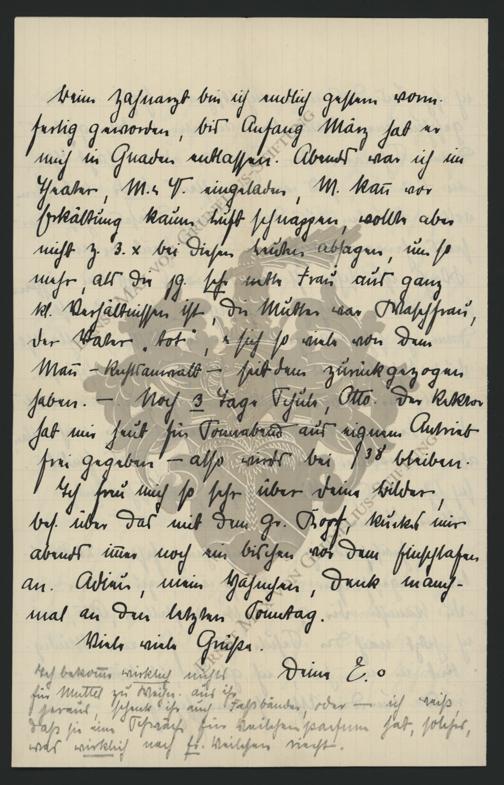 beim Zahnarzt bin ich endlich gestern vorm.
fertig geworden, bis Anfang März hat er
mich in Gnaden entlassen. Abends war ich im
Theater, M. u. V. eingeladen, M. kann vor
Erkältung kaum Luft schnappen, wollte aber
nicht z. 3. x bei diesen Leuten absagen, um so
mehr, als die jg. sehr nette Frau aus ganz
kl. Verhältnissen ist, die Mutter war Waschfrau,
der Vater "tot", u. sich so viele von dem
Mann – Rechtsanwalt – seitdem zurückgezogen
haben. – Noch 3 Tage Schule, Otto. Der Rektor
hat mir heut für Sonnabend aus eignem Antrieb
frei gegeben – also wirds bei 1 38 bleiben.
Ich freu mich so sehr über deine Bilder,
bes. über das mit dem gr. Kopf, kucks mir
abends immer noch ein bischen vor dem Einschlafen
an. Adieu, mein Hähnchen, denk manch-
mal an den letzten Sonntag.
Viele viele Grüße.
Deine E.
Ich bekomme wirklich nichts
für Muttel zu Weihn. aus ihr
heraus, schenk ihr ein, oder – ich weiß,
daß sie eine Schwäche für Veilchenparfum hat, solches,
was wirklich nach fr. Veilchen riecht.